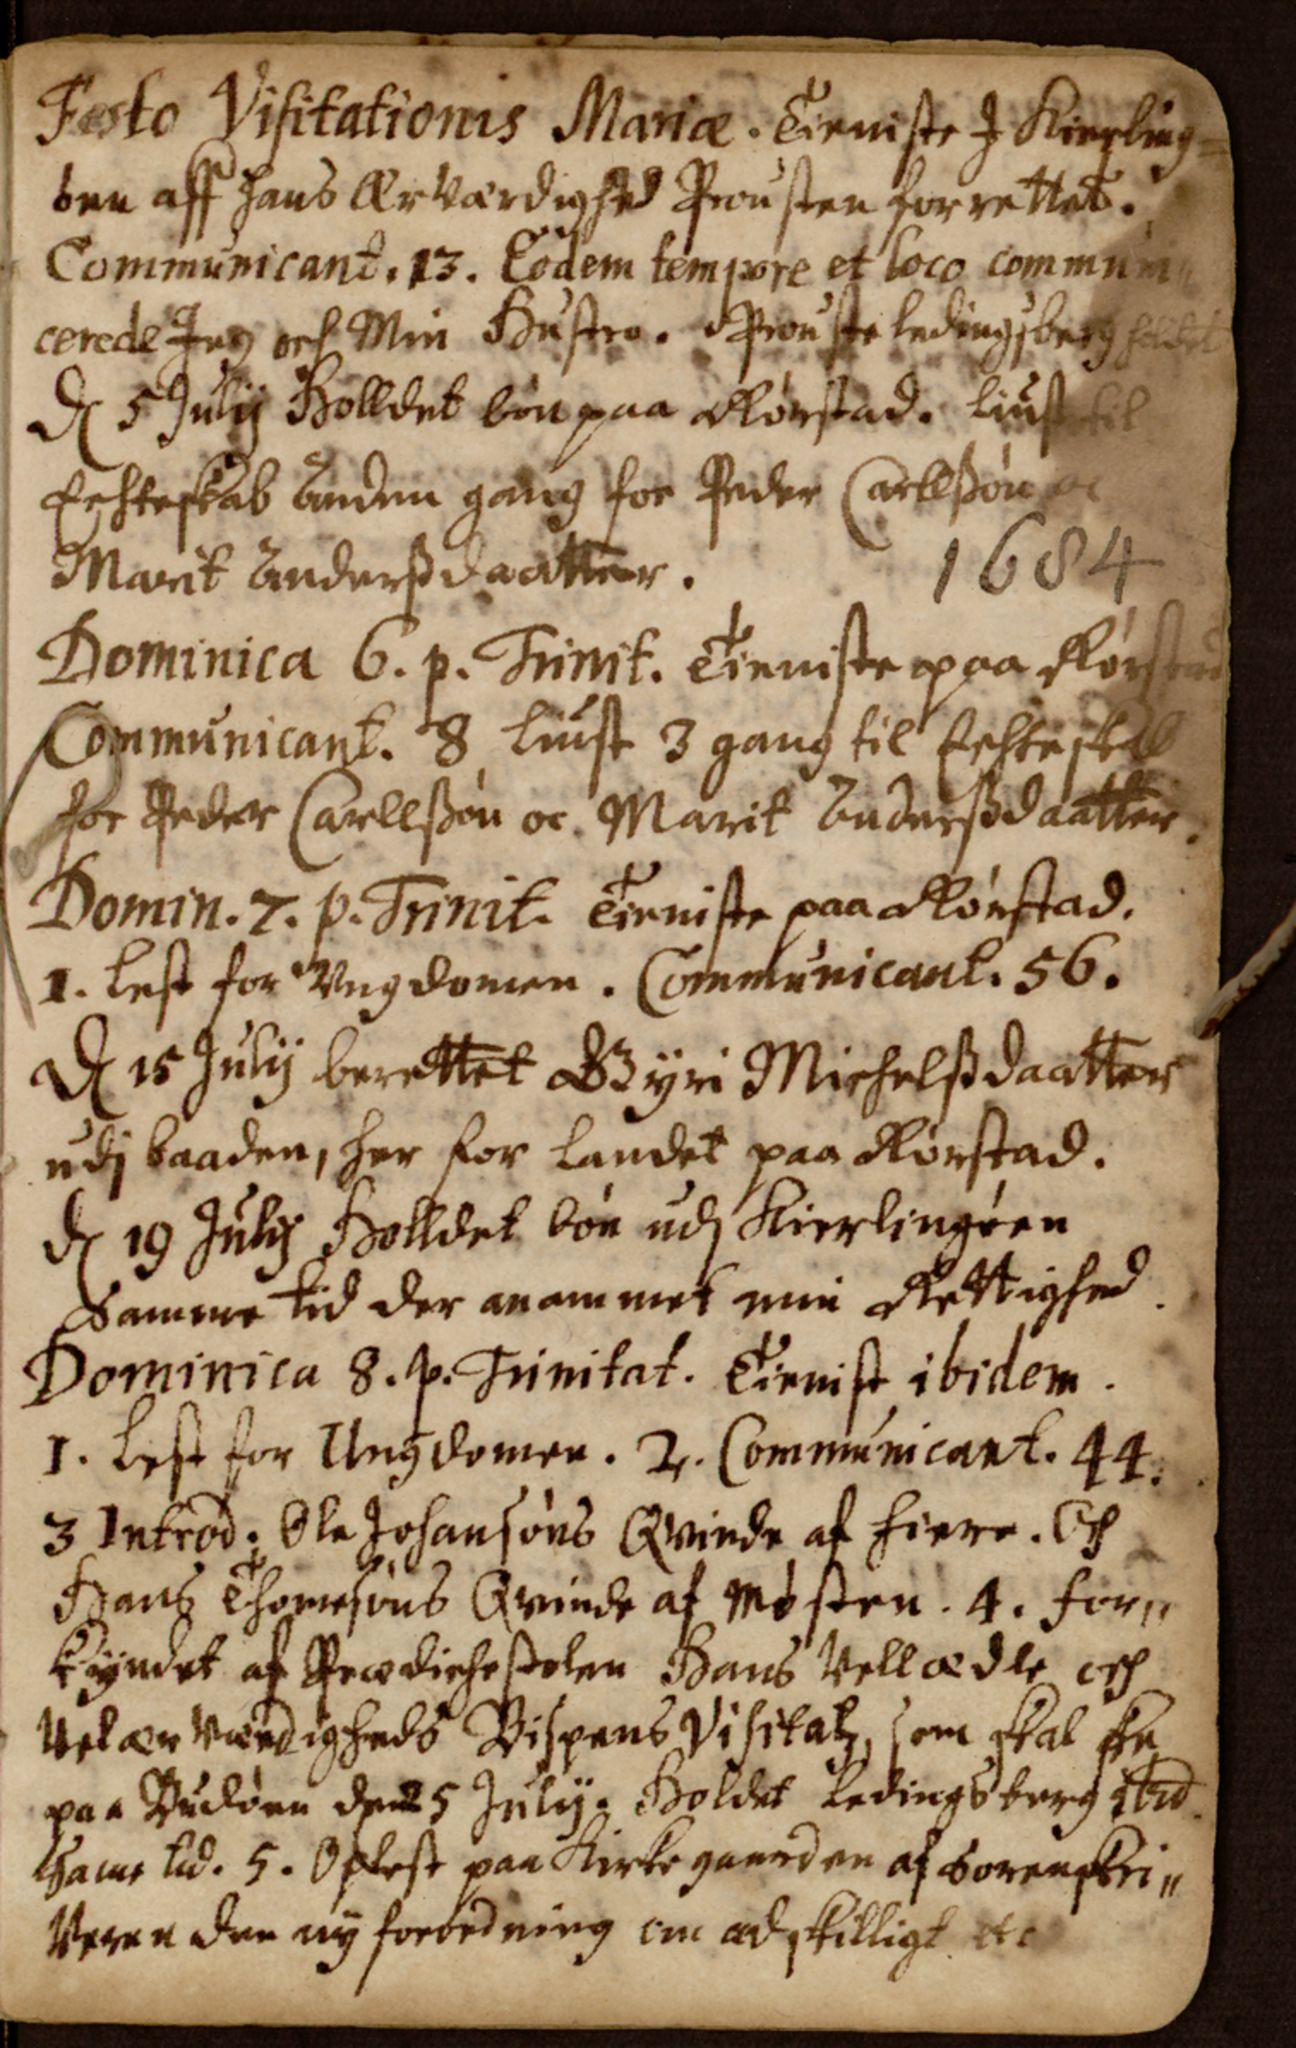 Festo Visitationis Mariæ. Tieniste J Kierling=
öen aff hans Ærværdighed Prousten forrettet.
Communicant. 13. Eodem tempore et loco communi=
cerede Jeg och Min Hustro. Prousteledingsberg holdet
D 5 Julij Holldet bön paa Rörstad. liust til
Echteskab Anden gang for Peder Carllssön oc
Marit Anderssdaatter. 1684
Dominica 6. p. Trinit. Tieniste paa Rörstad
Communicant. 8 liust 3 gang til Echteskab
for Peder Carllssön oc Marit Anderssdaatter.
Domin. 7. p. Trinit. Tieniste paa Rörstad.
1. lest for Vngdomen. Communicant. 56.
D 15 Julij berettet Gyri Michelssdaatter
udj baaden, her for landet paa Rörstad.
d 19 Julij Holldet bön udj Kierlingöen
Samme tid der anammet min Rettighed.
Dominica 8. p. Trinitat. Tienist ibidem.
1. Lest for Ungdomen. 2. Communicant. 44.
3 Introd. Ole Johansöns Qvinde af fiere. Och
Hans Thomesöns Qvinde af Mösten. 4. for=
kyndet af Prædichestolen Hans Vellædle och
Velærværdigheds Bispens Visitatz, som skal ske
paa Budöen den 25 Julij. Holdet Ledingsberg ibid.
same tid. 5. Oplest paa Kirkegaarden af Sorenskri=
veren den ny forordning om adskilligt etc